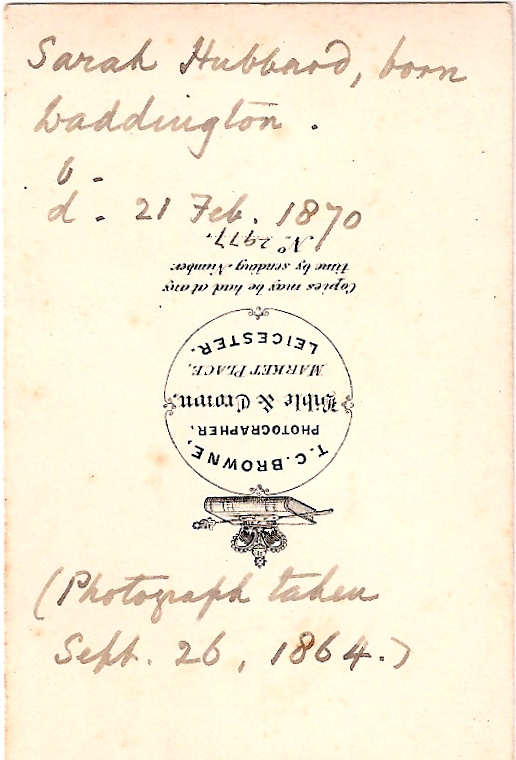 Sarah Hubbard, born
Waddington.
b.
d. 21 Feb. 1870
(Photograph taken
Sept. 26, 1864.)
T. C. BROWNE,
PHOTOGRAPHER,
Bible & Crown,
MARKET PLACE,
LEICESTER.
Copies may be had at any
time by sending Number.
No. 2977.